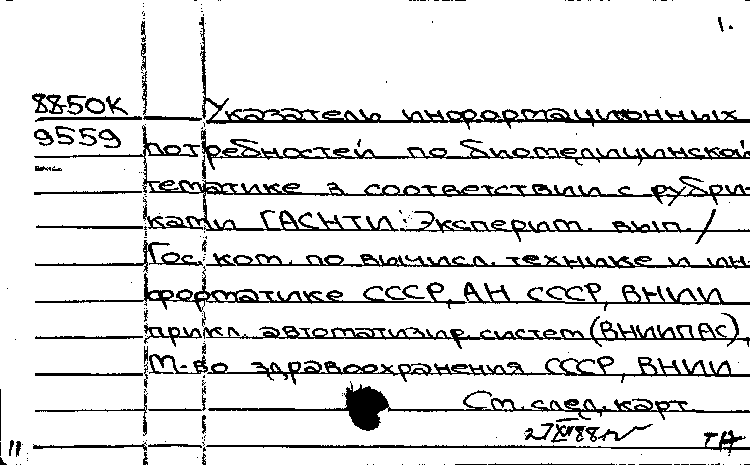 1.
88-50К Указатель информационных
9559 потребностей по биомедицинской
тематике в соответствии с рубри-
ками ГАСНТИ: Эксперим. вып./
Гос. ком. по вычисл. технике и ин-
форматике СССР, АН СССР, ВНИИ
прикл. автоматизир. систем (ВНИИПАС),
М-во здравоохранения СССР, ВНИИ
См. след. карт.
27 XII 88 г.
11